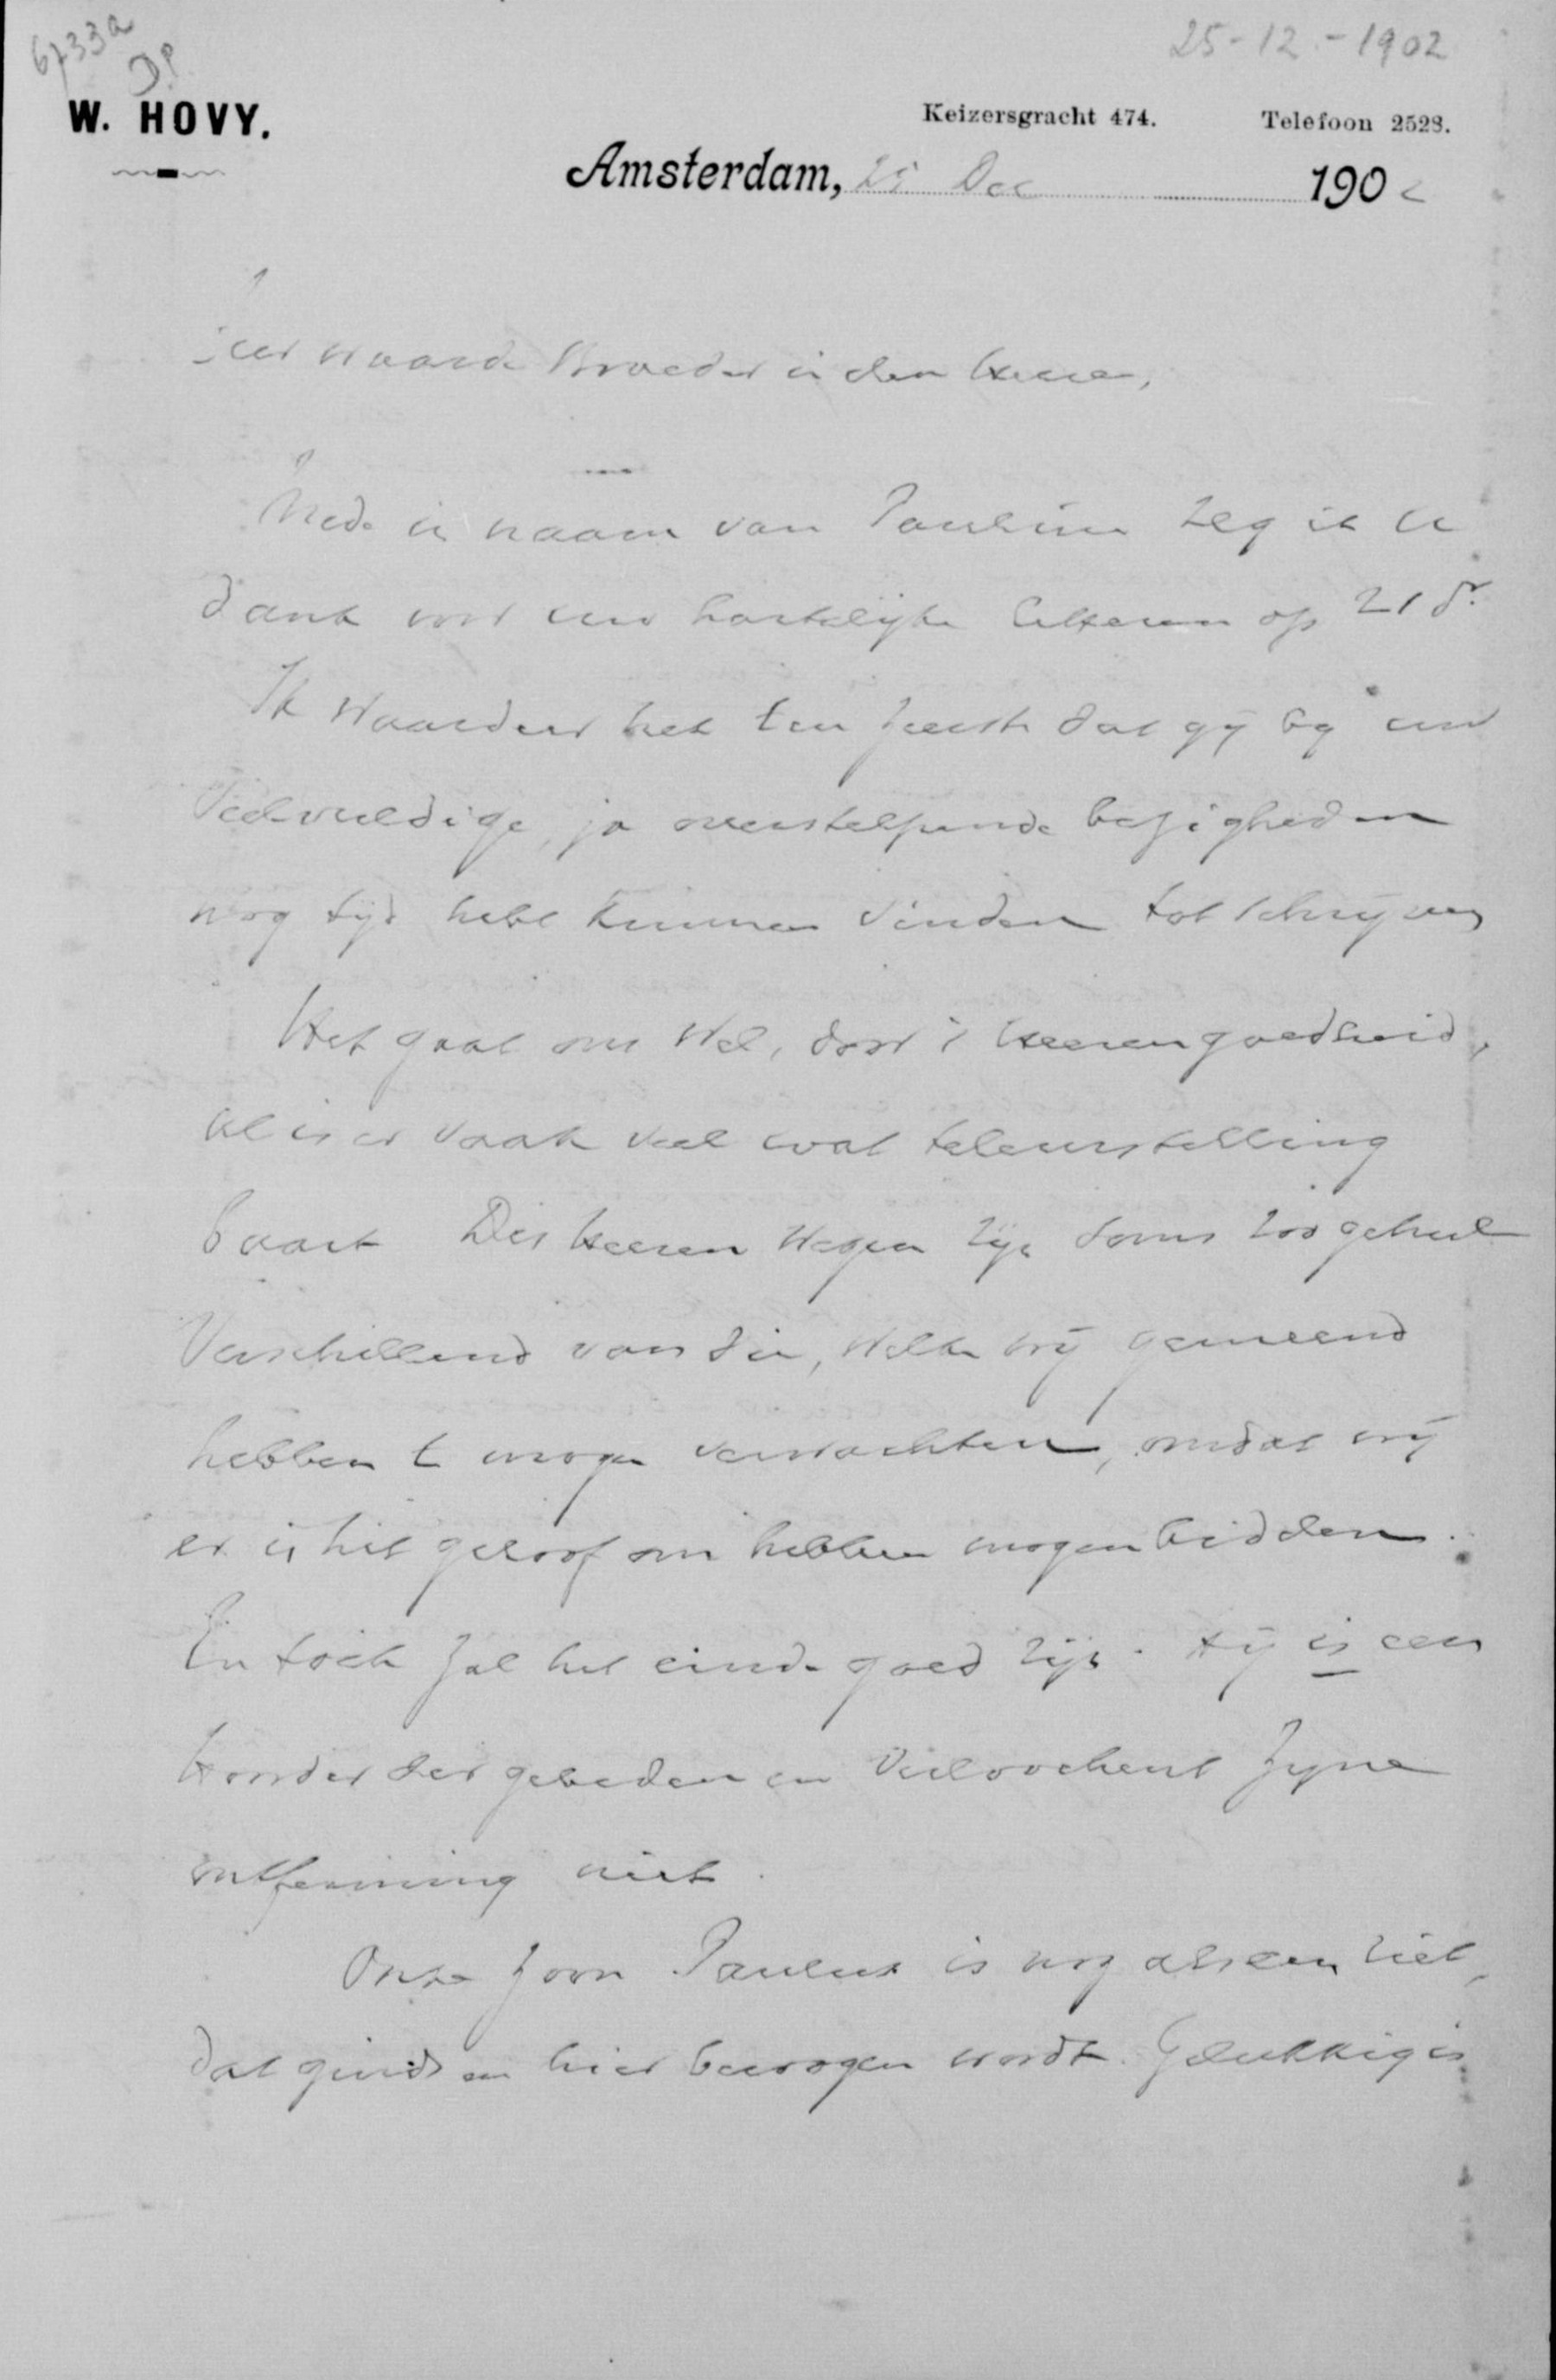 6733a
DP
25-12-1902
W. HOVY.
Keizersgracht 474. Telefoon 2528.
Amsterdam, 25 Dec 1902
Zeer waarde Broeder in den Heere,
Mede in naam van Pauline zeg ik U
dank voor uw hartelijke letteren op 21 dr.
Ik waardeer het ten zeerste dat gij bij uw
veelvuldige, ja overstelpende bezigheden
nog tijd hebt kunnen vinden tot schrijven
Het gaat ons wel, door 's Heeren goedheid,
al is er vaak veel wat teleurstelling
baart Des Heeren wegen zijn soms zoo geheel
verschillend van die, welke wij gemeend
hebben te mogen verwachten, omdat wij
er in het geloof om hebben mogen bidden.
En toch zal het einde goed zijn. Hij is een
Hoorder der gebeden en verloochent Zijne
ontferming niet.
Onze zoon Paulus is nog als een riet,
dat ginds en hier bewogen wordt. Gelukkig is